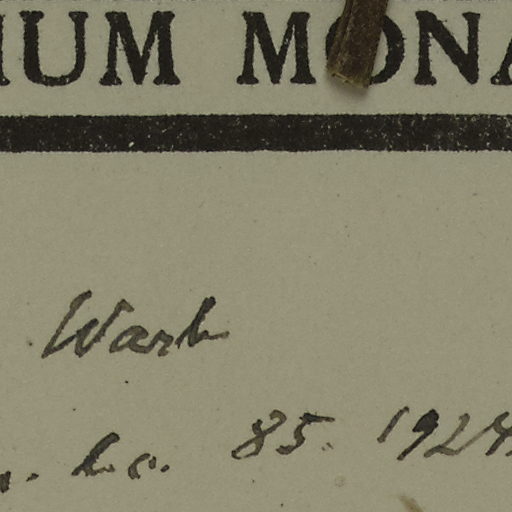 IUM MONA
Warb
85. 1924